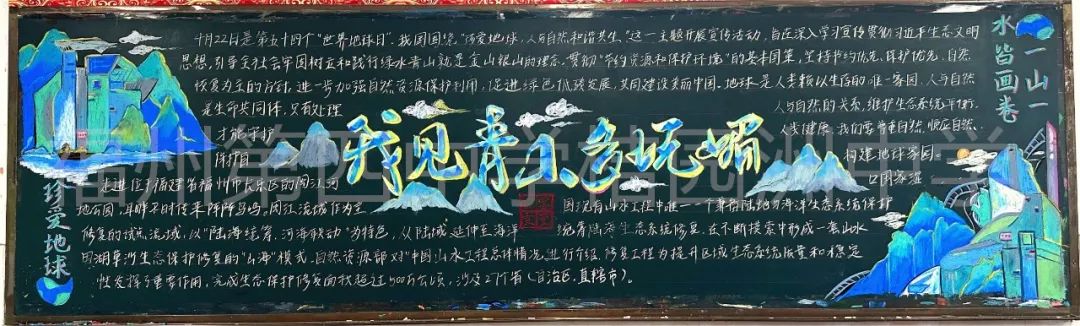 4月22日是第五十四个“世界地球日”。我国围绕“珍爱地球,人与自然和谐共生”这一主题开展宣传活动,旨在深入学习宣传贯彻习近平生态文明
思想,引导全社会牢固树立和践行绿水青山就是金山银山的理念,贯彻“节约资源和保护环境”的基本国策,坚持节约优先、保护优先、自然
恢复为主的方针,进一步加强自然资源保护利用,促进绿色低碳发展,共同建设美丽中国。地球是人类赖以生存的唯一家园,人与自然
是生命共同体,只有处理
人与自然的关系,维护生态系统平衡,
才能守护
人类健康。我们要尊重自然、顺应自然、
保护自
构建地球家园。
我见青山多妩媚
走进位于福建省福州市长乐区的闽江河
口国家湿
地公园,耳畔不时传来阵阵鸟鸣。闽江流域作为全
国现有山水工程中唯一一个兼有陆地与海洋生态系统保护
修复的试点流域,以“陆海统筹、河海联动”为特色,从陆域延伸至海洋
统筹陆海生态系统修复,在不断摸索中形成一套山水
田湖草沙生态保护修复的“山海”模式。自然资源部对“中国山水工程总体情况进行介绍,修复工程为提升区域生态系统质量和稳定
性发挥了重要作用,完成生态保护修复面积超过500万公顷,涉及27个省(自治区、直辖市)。
珍爱地球
一山一
水皆画卷
福州第四十中学